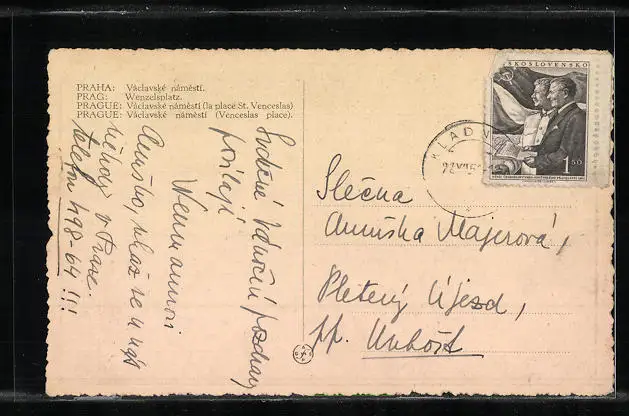 PRAHA: Václavské náměstí.
PRAG: Wenzelsplatz.
PRAGUE: Václavské náměstí (la place St. Venceslas)
PRAGUE: Václavské náměstí (Venceslas place).
Srdečné vánoční pozdravy
posílají
Anuško, ukaž se u nás
někdy v Praze.
telefon 498-64 !!!
ČESKOSLOVENSKO
1 50
KLADN
Slečna
Anuška Majerová,
Pletený Újezd,
pp. Unhošť